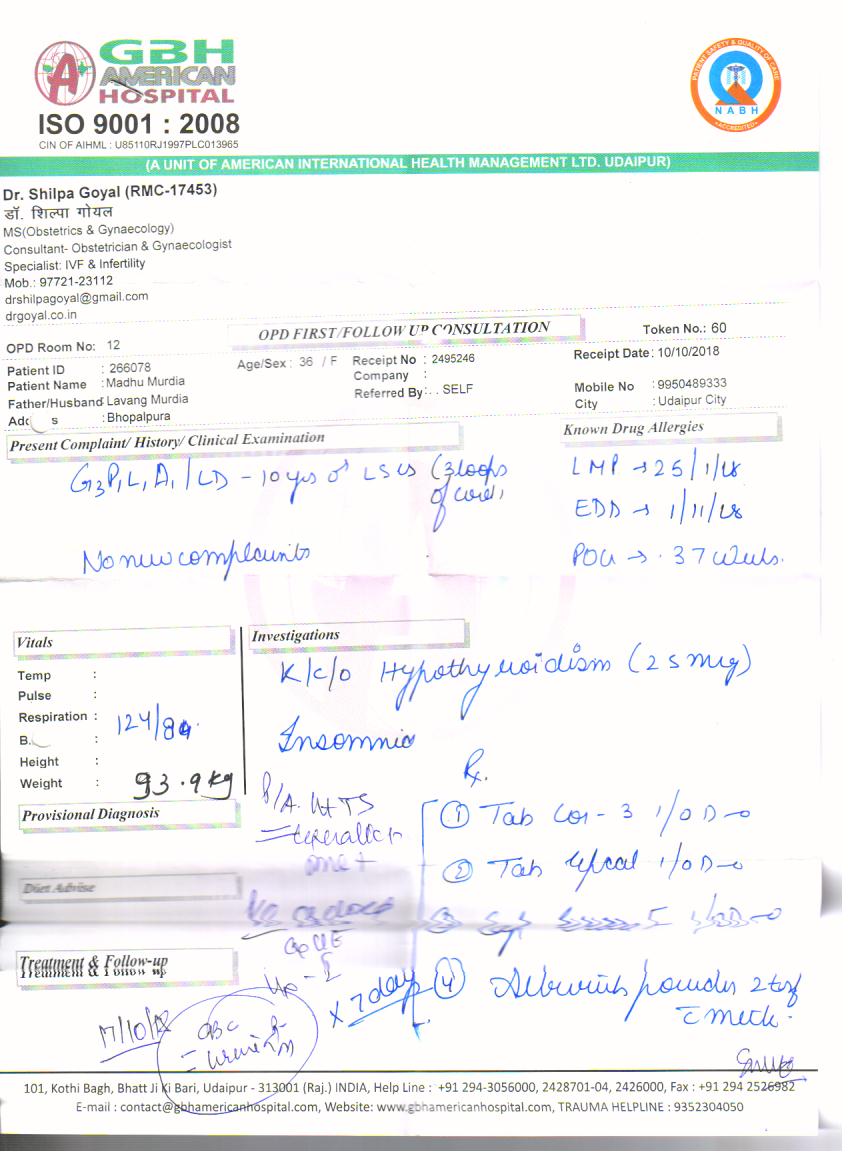 GBH
AMERICAN
HOSPITAL
ISO 9001 : 2008
CIN OF AIHML : U85110RJ1997PLC013965
PATIENT SAFETY & QUALITY OF CARE
NABH
ACCREDITED
(A UNIT OF AMERICAN INTERNATIONAL HEALTH MANAGEMENT LTD. UDAIPUR)
Dr. Shilpa Goyal (RMC-17453)
डॉ. शिल्पा गोयल
MS(Obstetrics & Gynaecology)
Consultant- Obstetrician & Gynaecologist
Specialist: IVF & Infertility
Mob.: 97721-23112
drshilpagoyal@gmail.com
drgoyal.co.in
OPD FIRST/FOLLOW UP CONSULTATION
Token No.: 60
OPD Room No: 12
Patient ID : 266078
Age/Sex : 36 / F
Receipt No : 2495246
Receipt Date: 10/10/2018
Patient Name : Madhu Murdia
Company :
Father/Husband Lavang Murdia
Referred By: . . SELF
Mobile No : 9950489333
Add s : Bhopalpura
City : Udaipur City
Present Complaint/ History/ Clinical Examination
Known Drug Allergies
G3P1L1A1/LD - 10 yrs LSCS (3 loops
of cord)
LMP → 25/1/18
EDD → 1/11/18
No new complaints
POG → 37 weeks.
Vitals
Investigations
Temp :
Pulse :
Respiration :
B. : 124/84
Height :
Weight : 93.9 kg
K/c/o Hypothyroidism (25 mcg)
Insomnia
Rx.
P/A. Ut TS
Provisional Diagnosis
① Tab 1/OD
② Tab 1/OD
Diet Advise
Treatment & Follow-up
x 7 days
④ powder 2 tsf
c̄ milk.
17/10/18
CBC
101, Kothi Bagh, Bhatt Ji Ki Bari, Udaipur - 313001 (Raj.) INDIA, Help Line : +91 294-3056000, 2428701-04, 2426000, Fax : +91 294 2526982
E-mail : contact@gbhamericanhospital.com, Website: www.gbhamericanhospital.com, TRAUMA HELPLINE : 9352304050